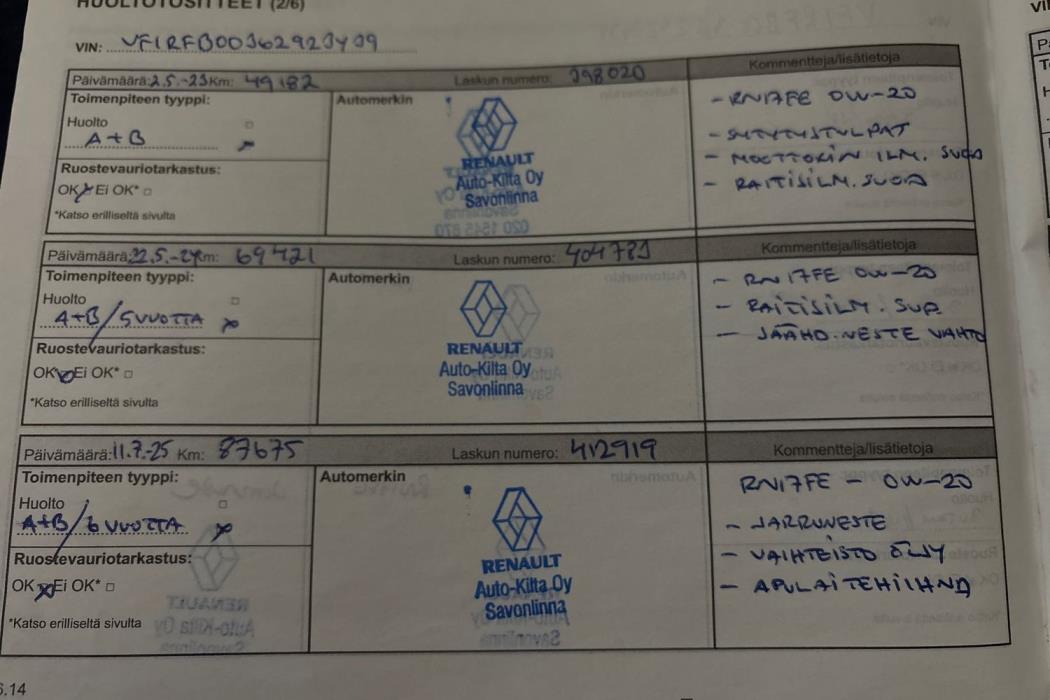 HUOLTOTOSITTEET (2/6)
VIN: VF1RFB00362923409
Päivämäärä: 2.5.-23 Km: 49182 Laskun numero: 398020 Kommentteja/lisätietoja
Toimenpiteen tyyppi: Automerkin
Huolto
A+B
Ruostevauriotarkastus:
OK Ei OK*
*Katso erilliseltä sivulta
RENAULT
Auto-Kilta Oy
Savonlinna
- RN17FE 0W-20
- SYTYTYSTULPAT
- MOOTTORIN ILM. SUOD
- RAITISILM. SUOD
Päivämäärä: 22.5.-24 Km: 69421 Laskun numero: 404783 Kommentteja/lisätietoja
Toimenpiteen tyyppi: Automerkin
Huolto
A+B/5VUOTTA
Ruostevauriotarkastus:
OK Ei OK*
*Katso erilliseltä sivulta
RENAULT
Auto-Kilta Oy
Savonlinna
- RN17FE 0W-20
- RAITISILM. SUOD
- JÄÄHD.NESTE VAHTO
Päivämäärä: 11.7.-25 Km: 87675 Laskun numero: 412919 Kommentteja/lisätietoja
Toimenpiteen tyyppi: Automerkin
Huolto
A+B/6 VUOTTA
Ruostevauriotarkastus:
OK Ei OK*
*Katso erilliseltä sivulta
RENAULT
Auto-Kilta Oy
Savonlinna
RN17FE - 0W-20
- JARRUNESTE
- VAIHTEISTO ÖLJY
- APULAITEHIHNA
6.14